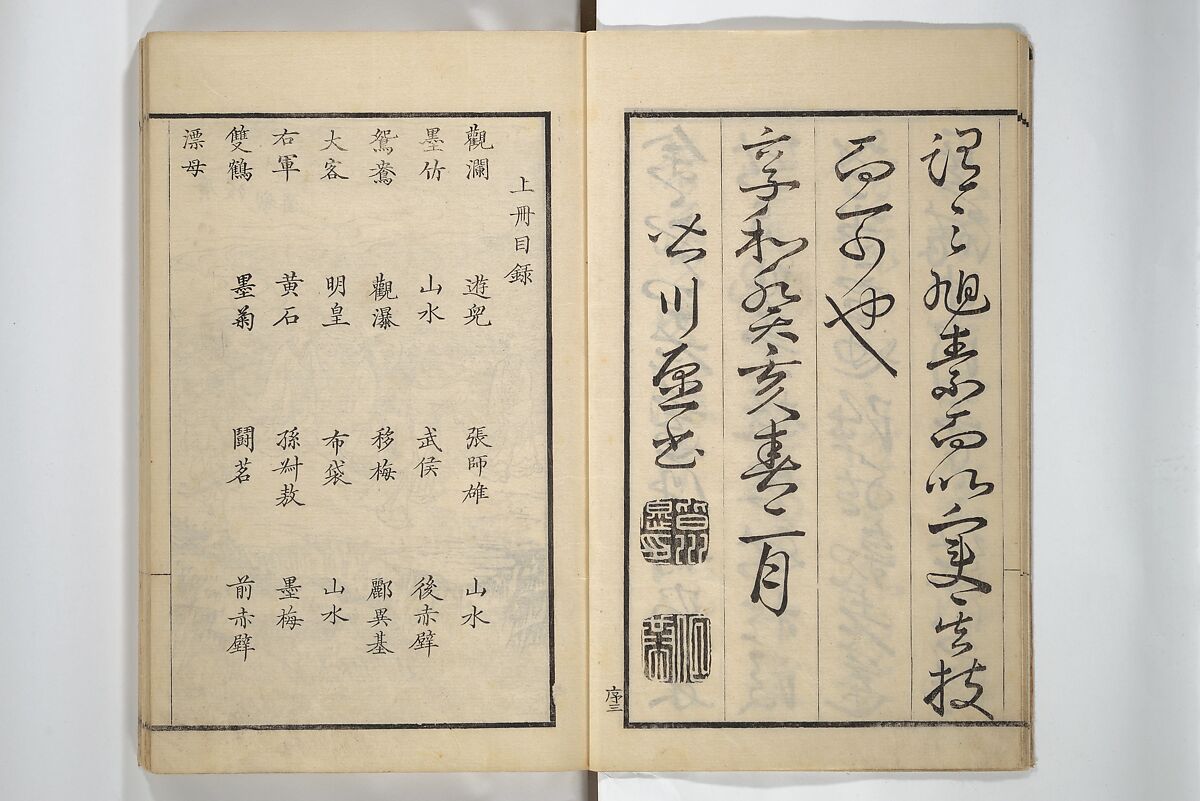 謂之旭素而以其技
而可也
享和癸亥春二月
皆川愿書
序三
上冊目録
觀瀾 遊兒 張師雄 山水
墨竹 山水 武侯 後赤壁
鴛鴦 觀瀑 移梅 酈異基
大客 明皇 布袋 山水
右軍 黄石 孫叔敖 墨梅
雙鶴 墨菊 鬪茗 前赤壁
漂母